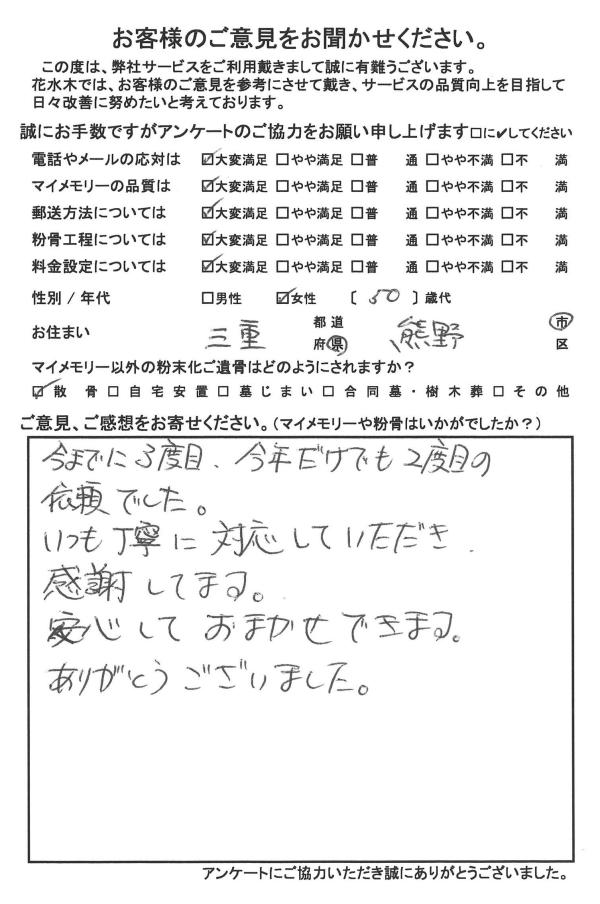 お客様のご意見をお聞かせください。
この度は、弊社サービスをご利用戴きまして誠に有難うございます。
花水木では、お客様のご意見を参考にさせて戴き、サービスの品質向上を目指して
日々改善に努めたいと考えております。
誠にお手数ですがアンケートのご協力をお願い申し上げます□に✔してください
電話やメールの応対は ☑大変満足 □やや満足 □普 通 □やや不満 □不 満
マイメモリーの品質は ☑大変満足 □やや満足 □普 通 □やや不満 □不 満
郵送方法については ☑大変満足 □やや満足 □普 通 □やや不満 □不 満
粉骨工程については ☑大変満足 □やや満足 □普 通 □やや不満 □不 満
料金設定については ☑大変満足 □やや満足 □普 通 □やや不満 □不 満
性別 / 年代 □男性 ☑女性 〔 50 〕歳代
お住まい 三重 都道府県 熊野 市区
マイメモリー以外の粉末化ご遺骨はどのようにされますか?
☑散 骨 □自宅安置 □墓じまい □合同墓・樹木葬 □その他
ご意見、ご感想をお寄せください。(マイメモリーや粉骨はいかがでしたか?)
今までに3度目、今年だけでも2度目の
依頼でした。
いつも丁寧に対応していただき、
感謝してます。
安心しておまかせできます。
ありがとうございました。
アンケートにご協力いただき誠にありがとうございました。